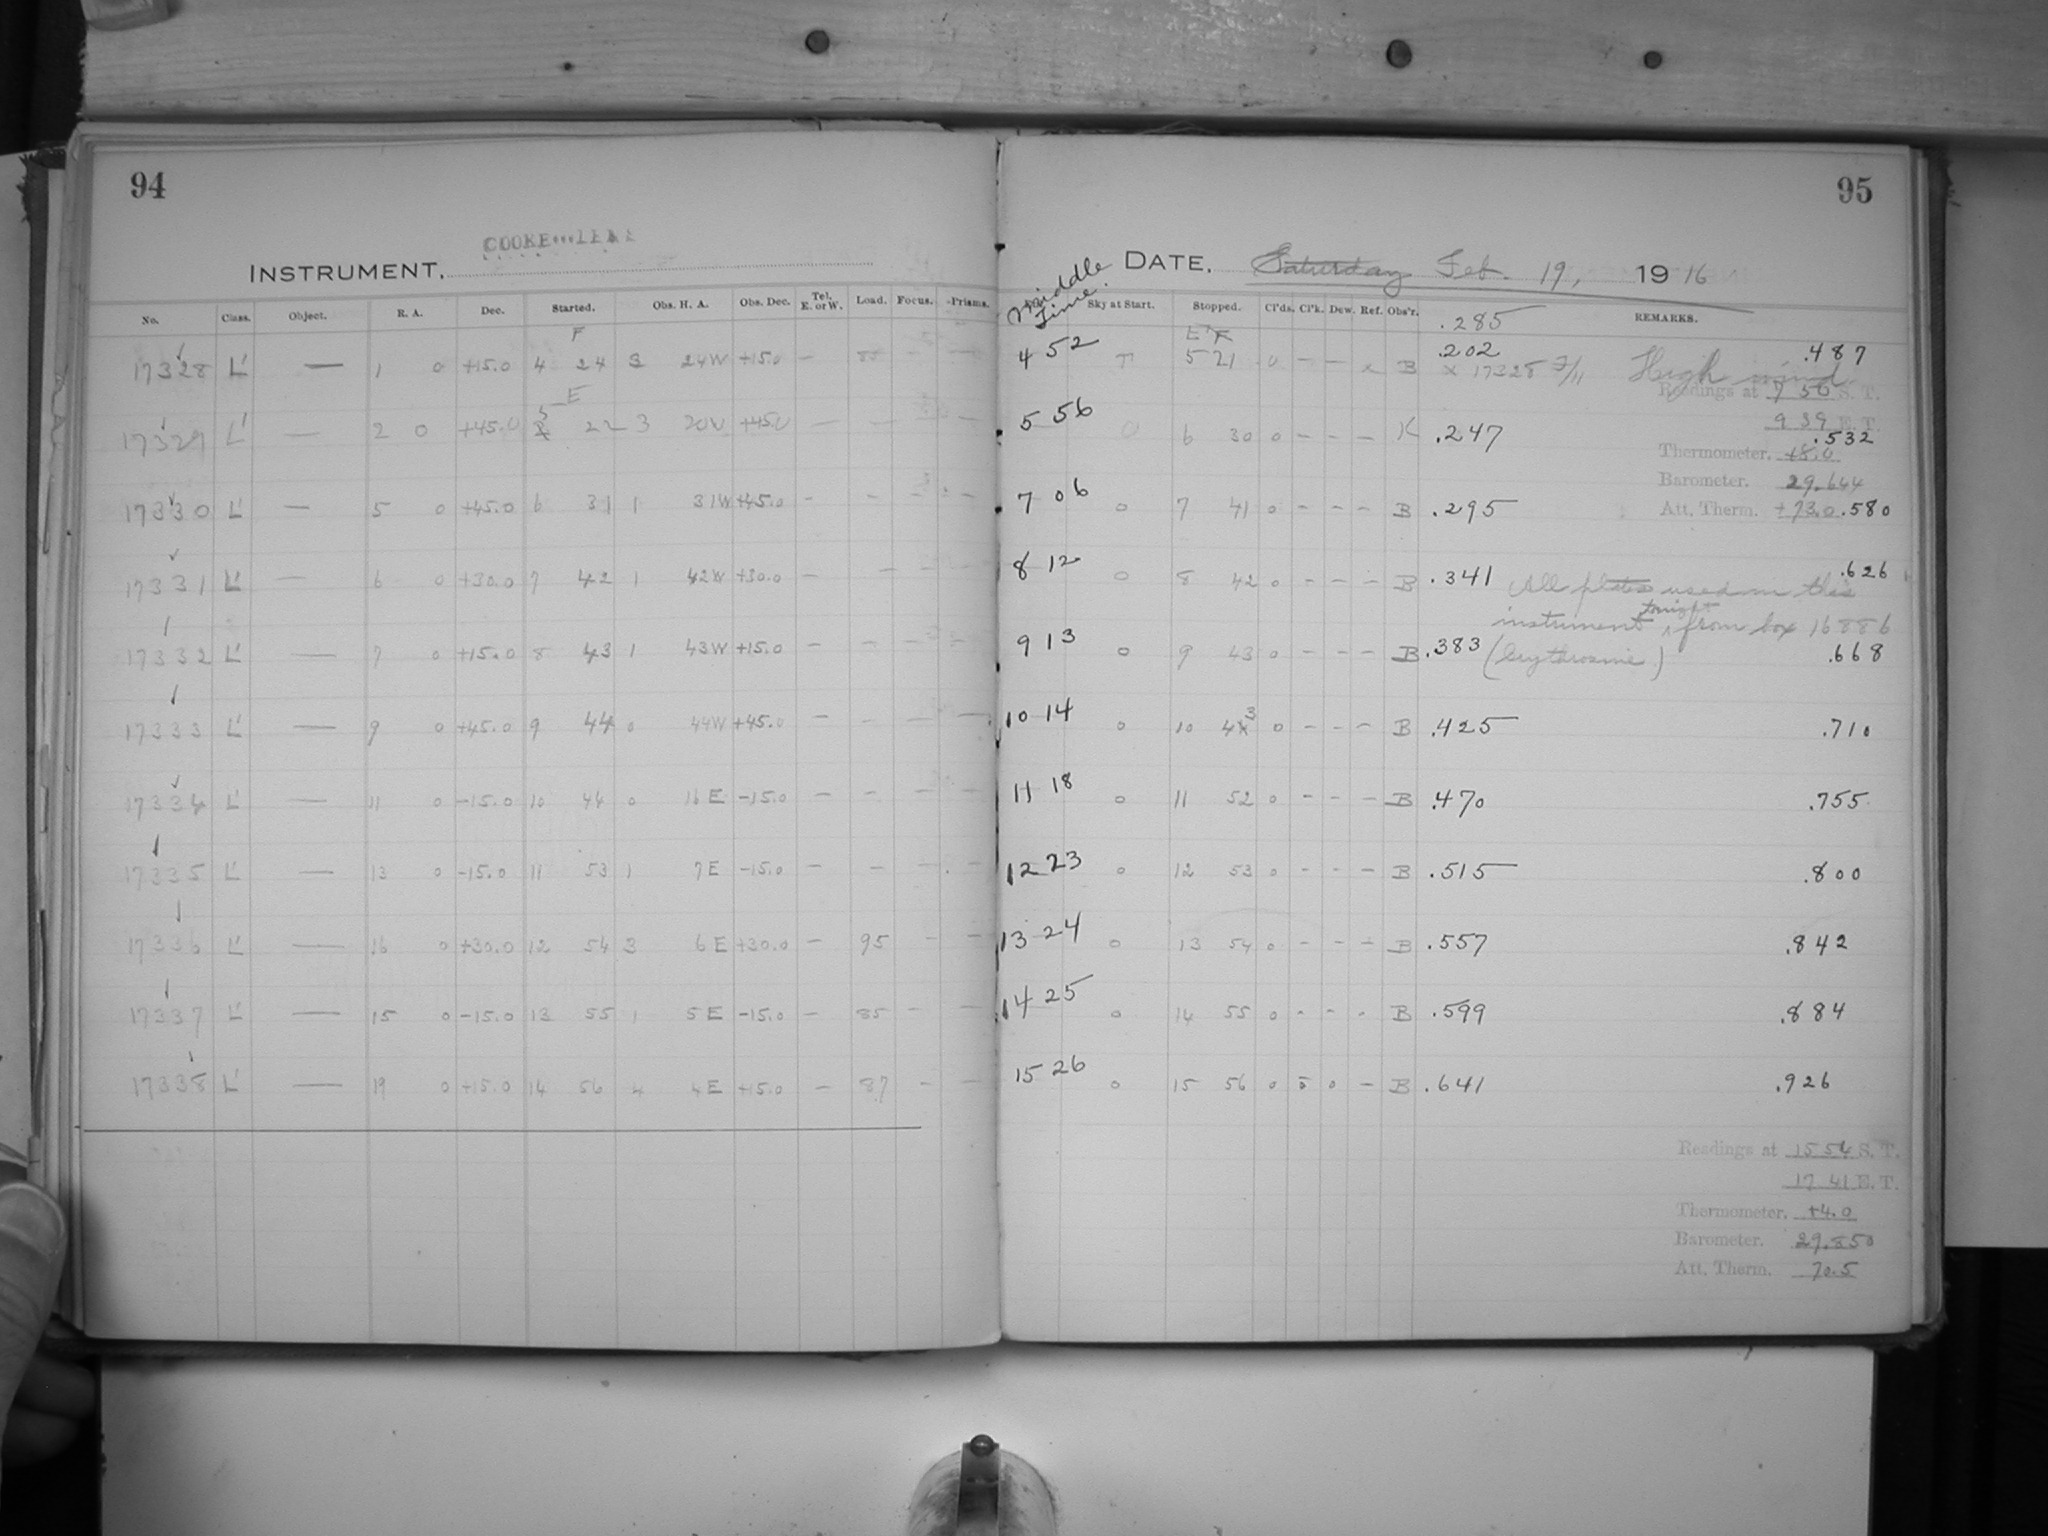 94
95
COOKE LENS
INSTRUMENT.
DATE. Saturday Feb. 19, 1916
Middle Time.
No. Class. Object. R. A. Dec. Started. Obs. H. A. Obs. Dec. Tel. E. or W. Load. Focus. Prisms. Sky at Start. Stopped. Cl'ds. Cl'k. Dew. Ref. Obs'r. REMARKS.
.285
F E
17328 L' — 1 0 +15.0 4 24 3 24W +15.0 — 85 — — 4 52 5 21 0 — — x B .202 .487
x 17328 High wind
Readings at 7 50 S. T.
E
17329 L' — 2 0 +45.0 5 22 3 20W +45.0 — — — — 5 56 0 6 30 0 — — — K .247 .532
9 39 E. T.
Thermometer. +8.0
Barometer. 29.644
17330 L' — 5 0 +45.0 6 31 1 31W +45.0 — — — — 7 06 0 7 41 0 — — — B .295 .580
Att. Therm. +73.0
17331 L' — 6 0 +30.0 7 42 1 42W +30.0 — — — — 8 12 0 8 42 0 — — — B .341 .626
All plates used in this
instrument tonight from box 16886
(Erythrosine)
17332 L' — 7 0 +15.0 8 43 1 43W +15.0 — — — — 9 13 0 9 43 0 — — — B .383 .668
17333 L' — 9 0 +45.0 9 44 0 44W +45.0 — — — — 10 14 0 10 43 0 — — — B .425 .710
17334 L' — 11 0 -15.0 10 44 0 16E -15.0 — — — — 11 18 0 11 52 0 — — — B .470 .755
17335 L' — 13 0 -15.0 11 53 1 7E -15.0 — — — — 12 23 0 12 53 0 — — — B .515 .800
17336 L' — 16 0 +30.0 12 54 3 6E +30.0 — 95 — — 13 24 0 13 54 0 — — — B .557 .842
17337 L' — 15 0 -15.0 13 55 1 5E -15.0 — 85 — — 14 25 0 14 55 0 — — — B .599 .884
17338 L' — 19 0 +15.0 14 56 4 4E +15.0 — 87 — — 15 26 0 15 56 0 5 0 — B .641 .926
Readings at 15 54 S. T.
17 41 E. T.
Thermometer. +4.0
Barometer. 29.850
Att. Therm. 70.5